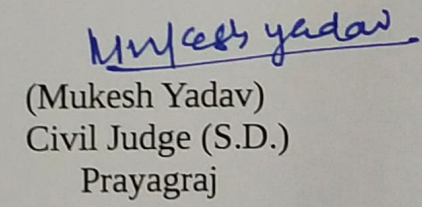 Mukesh yadav
(Mukesh Yadav)
Civil Judge (S.D.)
Prayagraj